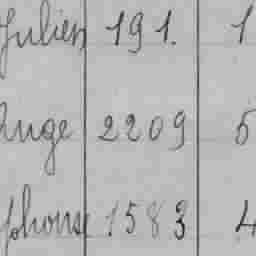 Julien 191. 1
Ange 2209 5
phonse 1583 4